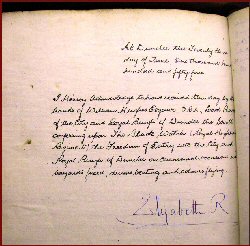 At Dundee this Twenty
day of June One thousand nine
hundred and fifty five
I Hereby Acknowledge to have received this day by the
hands of William Hughes Esquire O.B.E. Lord
of the City and Royal Burgh of Dundee the
conferring upon The Black Watch (Royal Highland
Regiment) the Freedom of Entry into the City and
Royal Burgh of Dundee on ceremonial occasions with
bayonets fixed, drums beating and colours flying.
Elizabeth R